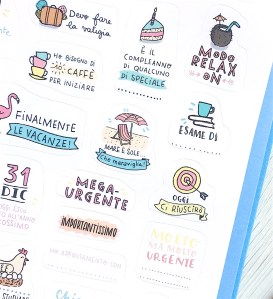 Devo fare
la valigia
HO BISOGNO DI
CAFFÈ
PER INIZIARE
È IL
COMPLEANNO
DI QUALCUNO
DI SPECIALE
MODO
RELAX
ON
FINALMENTE
LE VACANZE!
MARE E SOLE
Che meraviglia!
ESAME DI
31
DIC
MEGA-
URGENTE
IMPORTANTISSIMO
OGGI
CI RIUSCIRÒ
MOLTO
MA MOLTO
URGENTE
APPUNTAMENTO CON